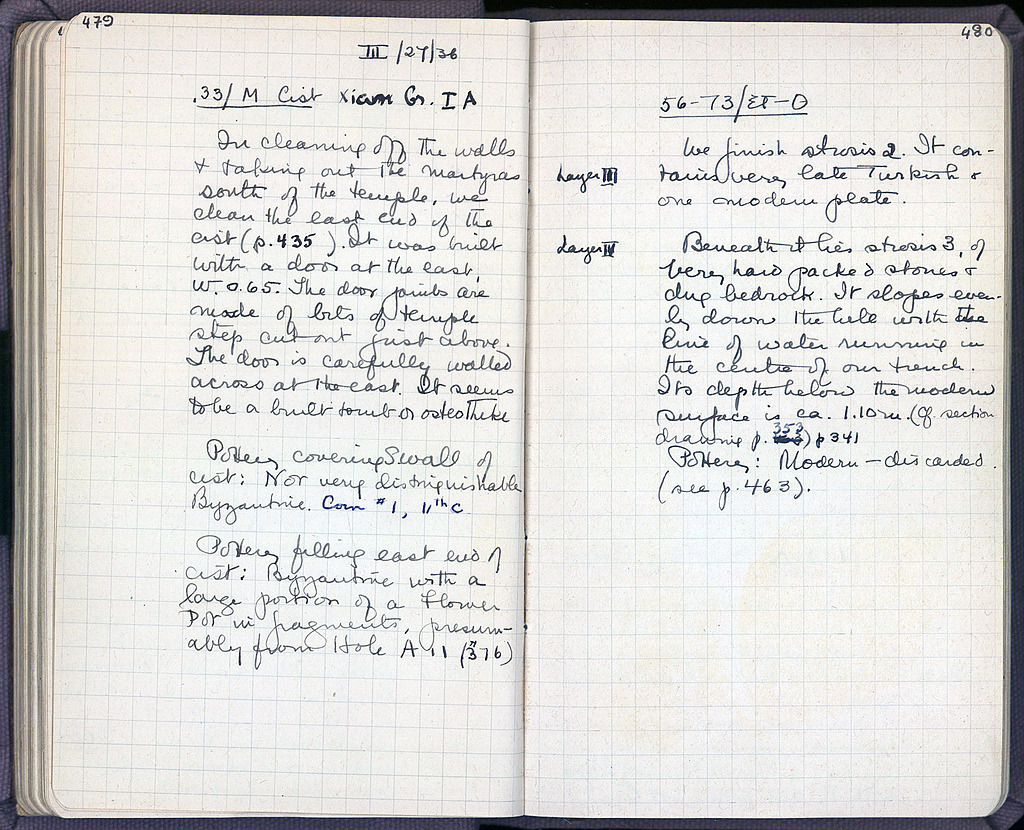 479
III/27/36
33/M Cist Xian Gr. I A
In cleaning off the walls
+ taking out the martyras
south of the temple, we
clean the east end of the
cist (p.435). It was built
with a door at the east,
W. 0.65. The door jambs are
made of bits of temple
step cut out just above.
The door is carefully walled
across at the east. It seems
to be a built tomb or osteotheke
Pottery covering S wall of
cist: Not very distinguishable
Byzantine. Coin #1, 11th C
Pottery filling east end of
cist: Byzantine with a
large portion of a Flower
Pot in fragments, presum-
ably from Hole A 11 (376)
480
56-73/ET-O
We finish strosis 2. It con-
Layer III tains very late Turkish +
one modern plate.
Layer IV Beneath it lies strosis 3, of
very hard packed stones +
dug bedrock. It slopes even-
ly down the hill with the
line of water running in
the centre of our trench.
Its depth below the modern
surface is ca. 1.10 m. (Cf. section
drawing p. 353) p 341
Pottery: Modern - discarded.
(see p. 463).